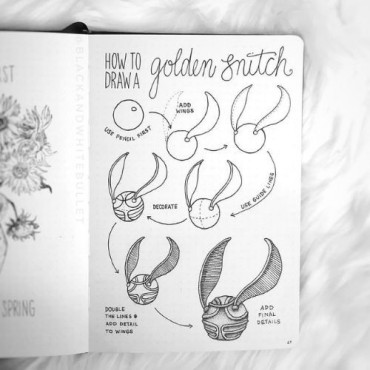 HOW TO
DRAW A
golden snitch
USE PENCIL FIRST
ADD
WINGS
USE GUIDE LINES
DECORATE
DOUBLE
THE LINES &
ADD DETAIL
TO WINGS
ADD
FINAL
DETAILS
BLACKANDWHITEBULLET
SPRING